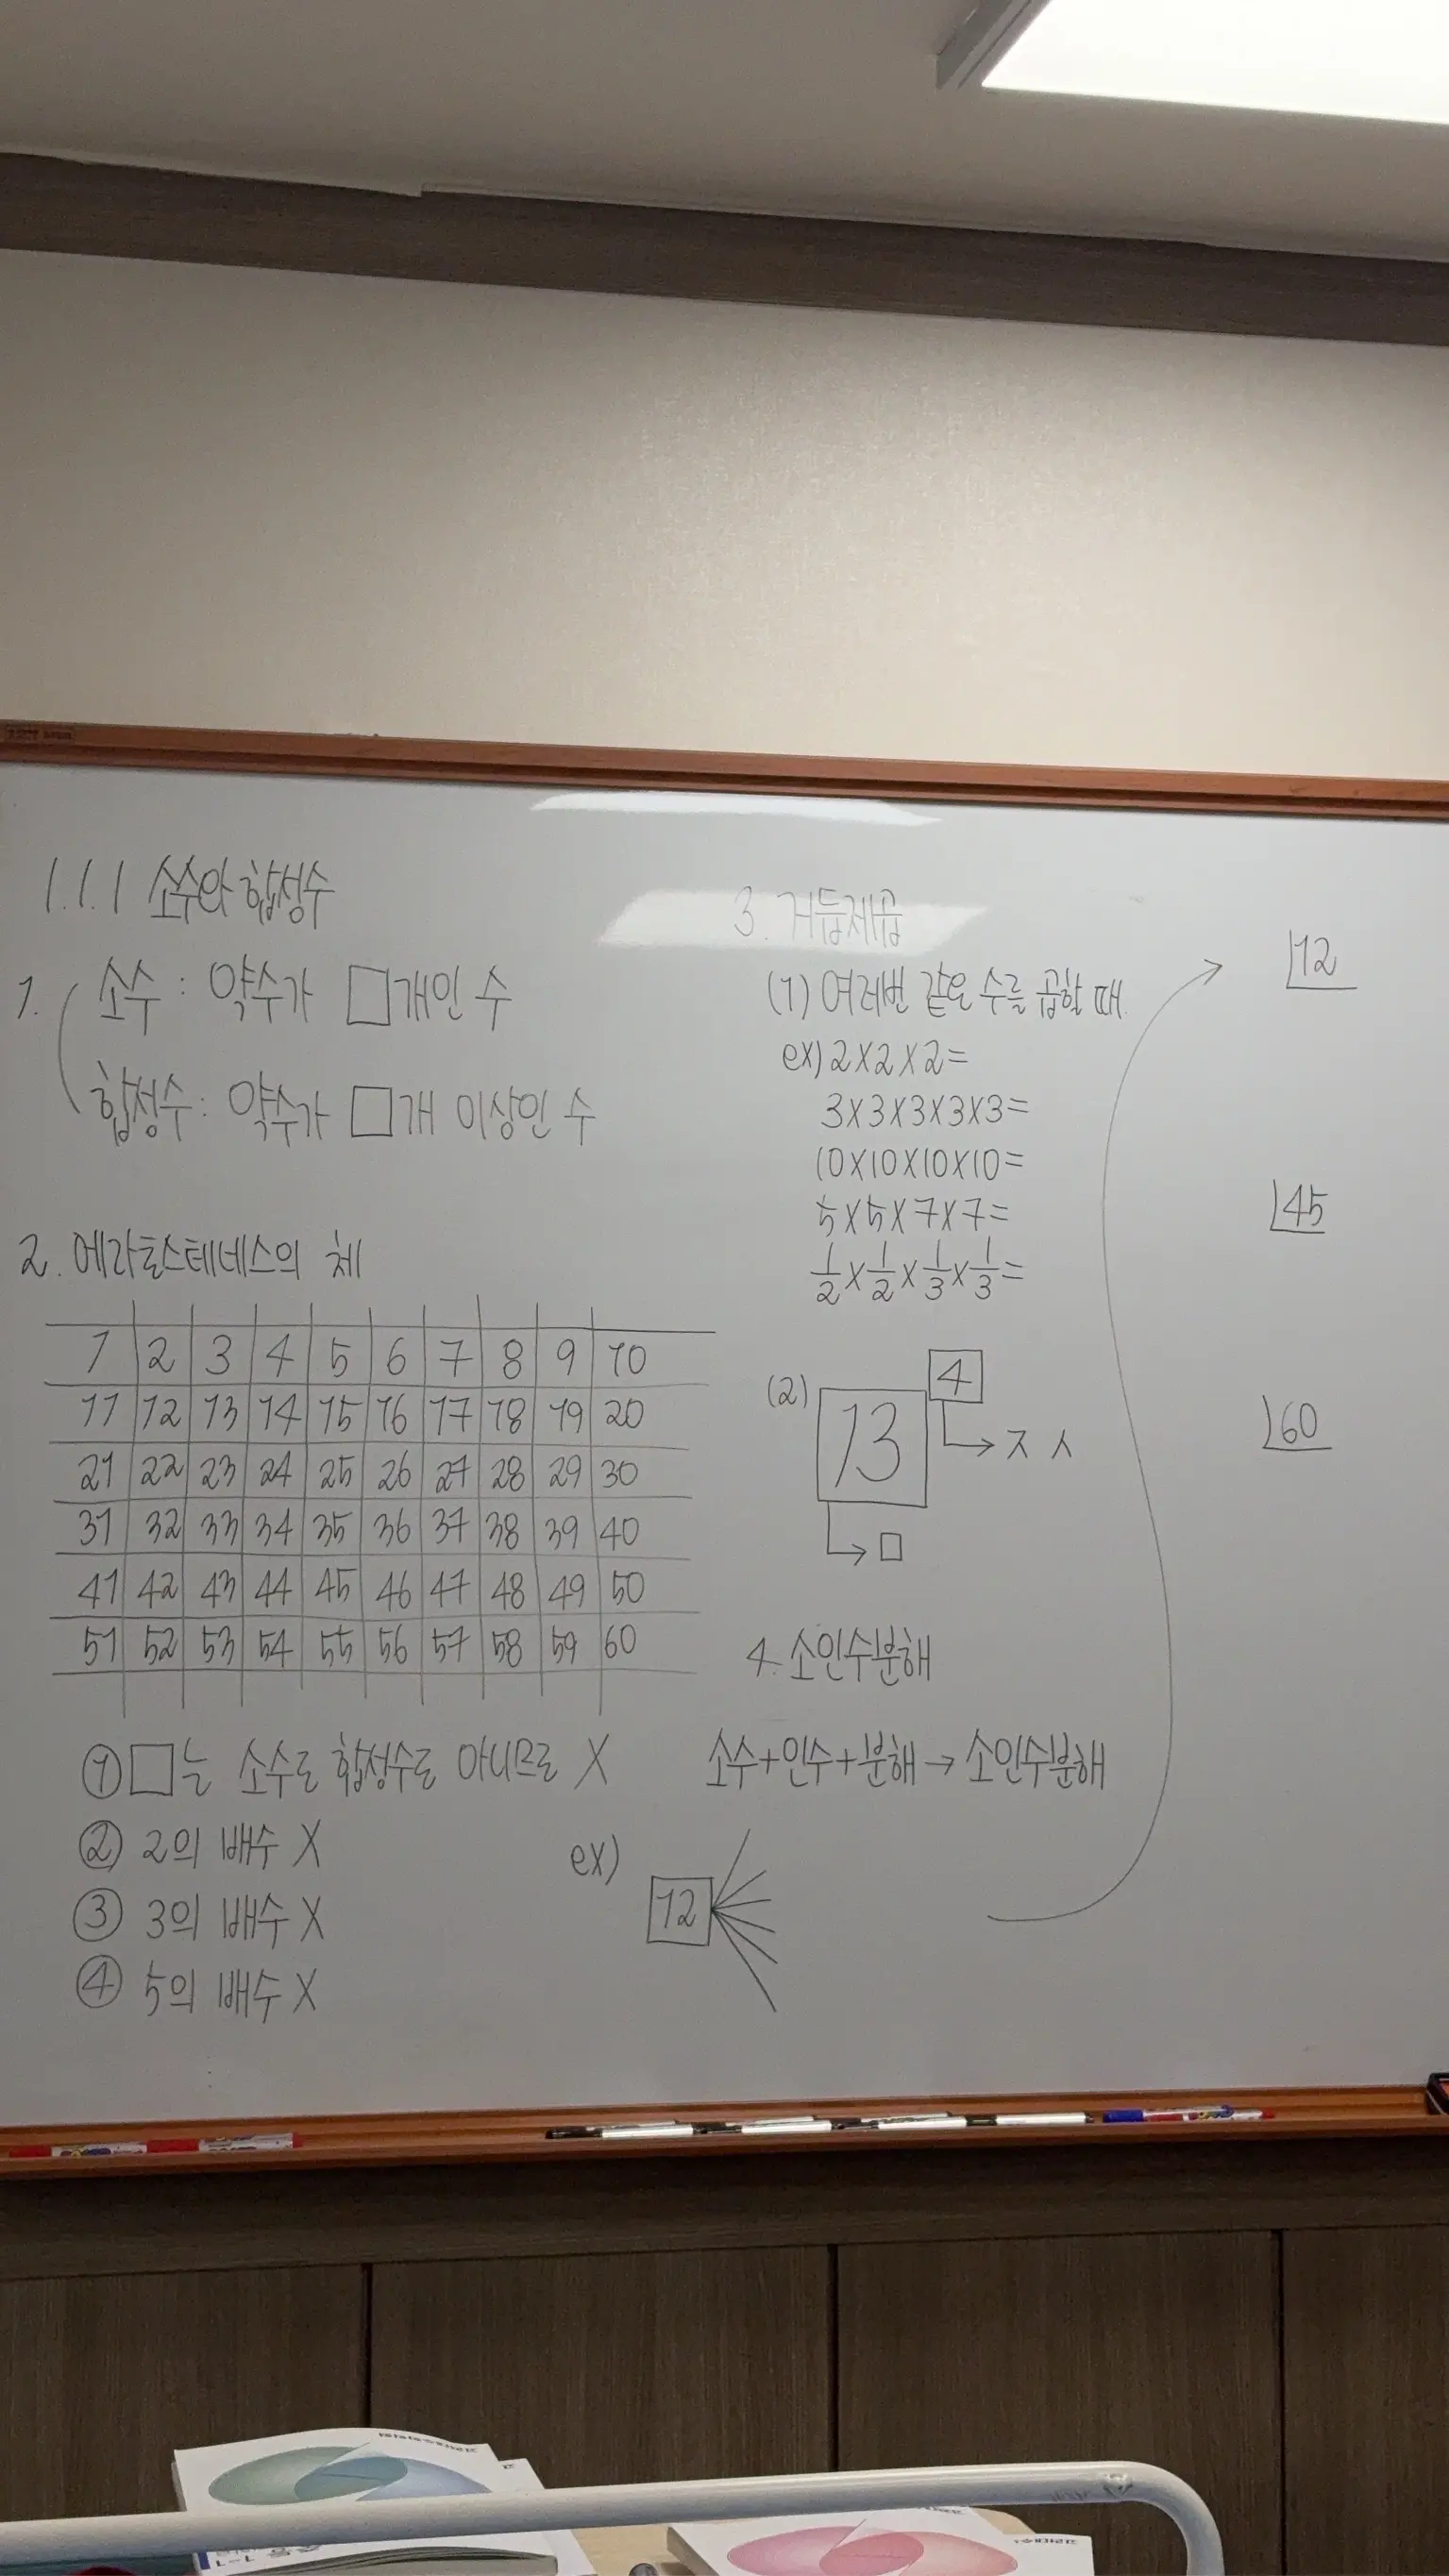 1.1.1 소수와 합성수
1. 소수 : 약수가 □개인 수
합성수 : 약수가 □개 이상인 수
2. 에라토스테네스의 체
1 2 3 4 5 6 7 8 9 10
11 12 13 14 15 16 17 18 19 20
21 22 23 24 25 26 27 28 29 30
31 32 33 34 35 36 37 38 39 40
41 42 43 44 45 46 47 48 49 50
51 52 53 54 55 56 57 58 59 60
① □는 소수도 합성수도 아니므로 X
② 2의 배수 X
③ 3의 배수 X
④ 5의 배수 X
3. 거듭제곱
(1) 여러번 같은 수를 곱할 때
ex) 2×2×2=
3×3×3×3×3=
10×10×10×10=
5×5×7×7=
1/2×1/2×1/3×1/3=
(2) 13 4
→ ㅈ ㅅ
→ □
4. 소인수분해
소수+인수+분해→소인수분해
ex) 12
12
45
60